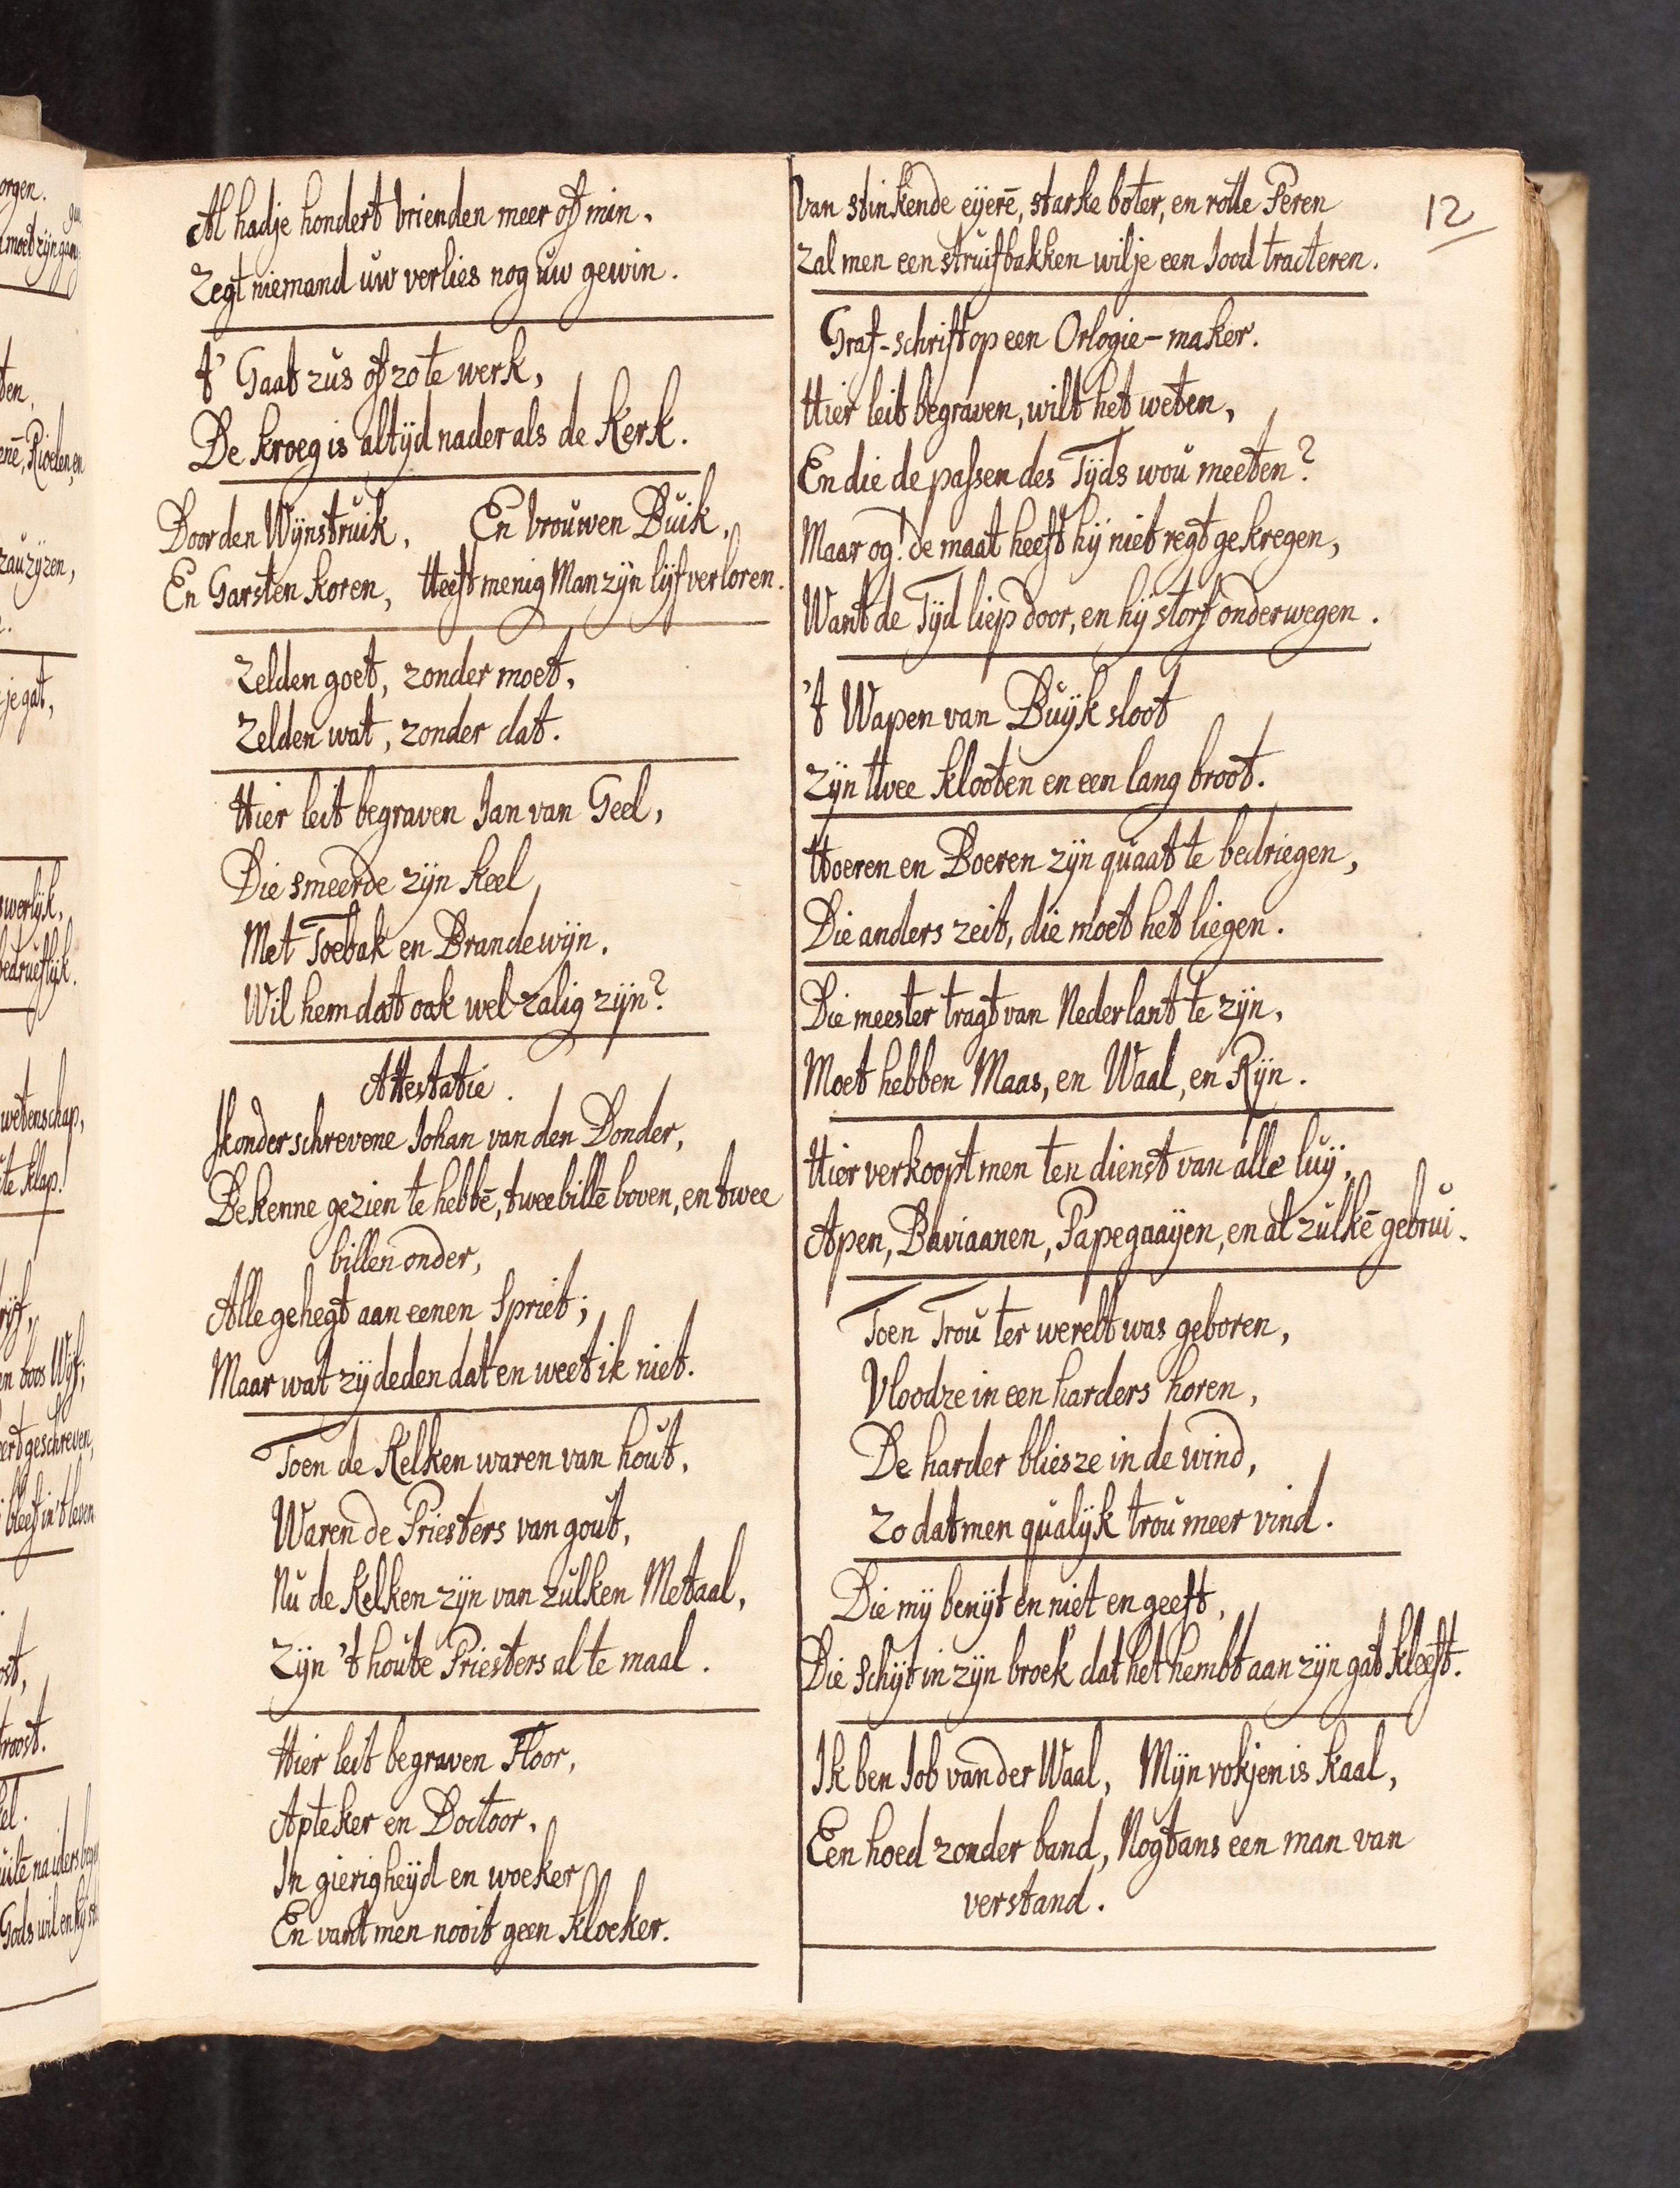 Al hadje hondert vrienden meer of min,
Zegt niemand uw verlies nog uw gewin.
t' Gaat zus of zo te werk,
De kroeg is altÿd nader als de Kerk.
Door den Wÿnstruik, En vrouwen Buik,
En Garsten koren, Heeft menig Man zÿn lÿf verloren.
Zelden goet, zonder moet,
Zelden wat, zonder dat.
Hier leit begraven Jan van Geel,
Die smeerde zÿn keel
Met Toebak en Brandewÿn.
Wil hem dat ook wel zalig zÿn?
Attestatie.
Ik onderschrevene Johan van den Donder,
Bekenne gezien te hebbē, twee billē boven, en twee
billen onder,
Alle gehegt aan eenen Spriet;
Maar wat zÿ deden dat en weet ik niet.
Toen de Kelken waren van hout,
Waren de Priesters van gout,
Nu de Kelken zÿn van zulken Metaal,
Zÿn 't houte Priesters al te maal.
Hier leit begraven Floor,
Apteker en Doctoor,
In gierigheÿd en woeker
En vant men nooit geen kloeker.
12
Van stinkende eÿerē, starke boter, en rotte Peren
Zal men een struif bakken wil je een Jood tracteren.
Graf-schrift op een Orlogie-maker.
Hier leit begraven, wilt het weten,
En die de passen des Tÿds wou meeten?
Maar og! de maat heeft hÿ niet regt gekregen,
Want de Tÿd liep door, en hÿ storf onderwegen.
't Wapen van Buÿksloot
Zÿn twee klooten en een lang broot.
Hoeren en Boeren zÿn quaat te bedriegen,
Die anders zeit, die moet het liegen.
Die meester tragt van Nederlant te zÿn,
Moet hebben Maas, en Waal, en Rÿn.
Hier verkoopt men ten dienst van alle luÿ,
Apen, Baviaanen, Papegaaÿen, en al zulkē gebrui.
Toen Trou ter werelt was geboren,
Vlood ze in een harders horen,
De harder blies ze in de wind,
Zo dat men qualÿk trou meer vind.
Die mÿ benÿt en niet en geeft,
Die schÿt in zÿn broek dat het hembt aan zÿn gat kleeft.
Ik ben Job van der Waal, Mÿn rokjen is kaal,
Een hoed zonder band, Nogtans een man van
verstand.